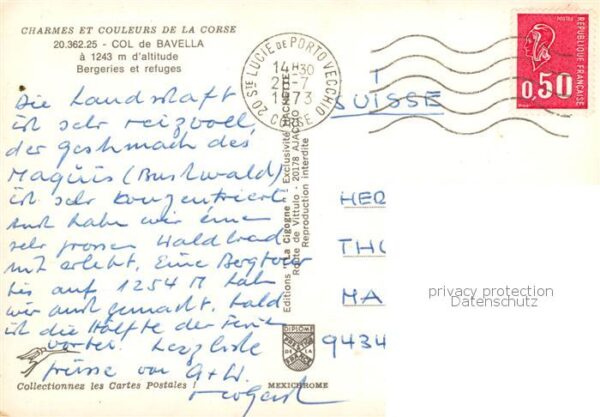 CHARMES ET COULEURS DE LA CORSE
20.362.25 - COL de BAVELLA
à 1243 m d'altitude
Bergeries et refuges
Die Landschaft
ist sehr reizvoll,
der geschmach des
Maquis (Buschwald)
ist sehr konzentriert
auch haben wir einen
sehr grossen Waldbrand
mit erlebt. Eine Bergtour
bis auf 1254 M hab
wir auch gemacht. bald
ist die Hälfte der Ferien
vorbei. Herzliche
Grüsse von G+W.
Collectionnez les Cartes Postales !
Editions "La Cigogne" - Exclusivité HACHETTE
Route de Vittulo - 20178 AJACCIO
Reproduction interdite
DIPLOME
PRESTIGE
DE LA
FRANCE
MEXICHROME
20 STE LUCIE DE PORTO VECCHIO
14H30
7
1973
CORSE
POSTES
RÉPUBLIQUE FRANÇAISE
0,50
SUISSE
HER
THO
MA
9434
privacy protection
Datenschutz